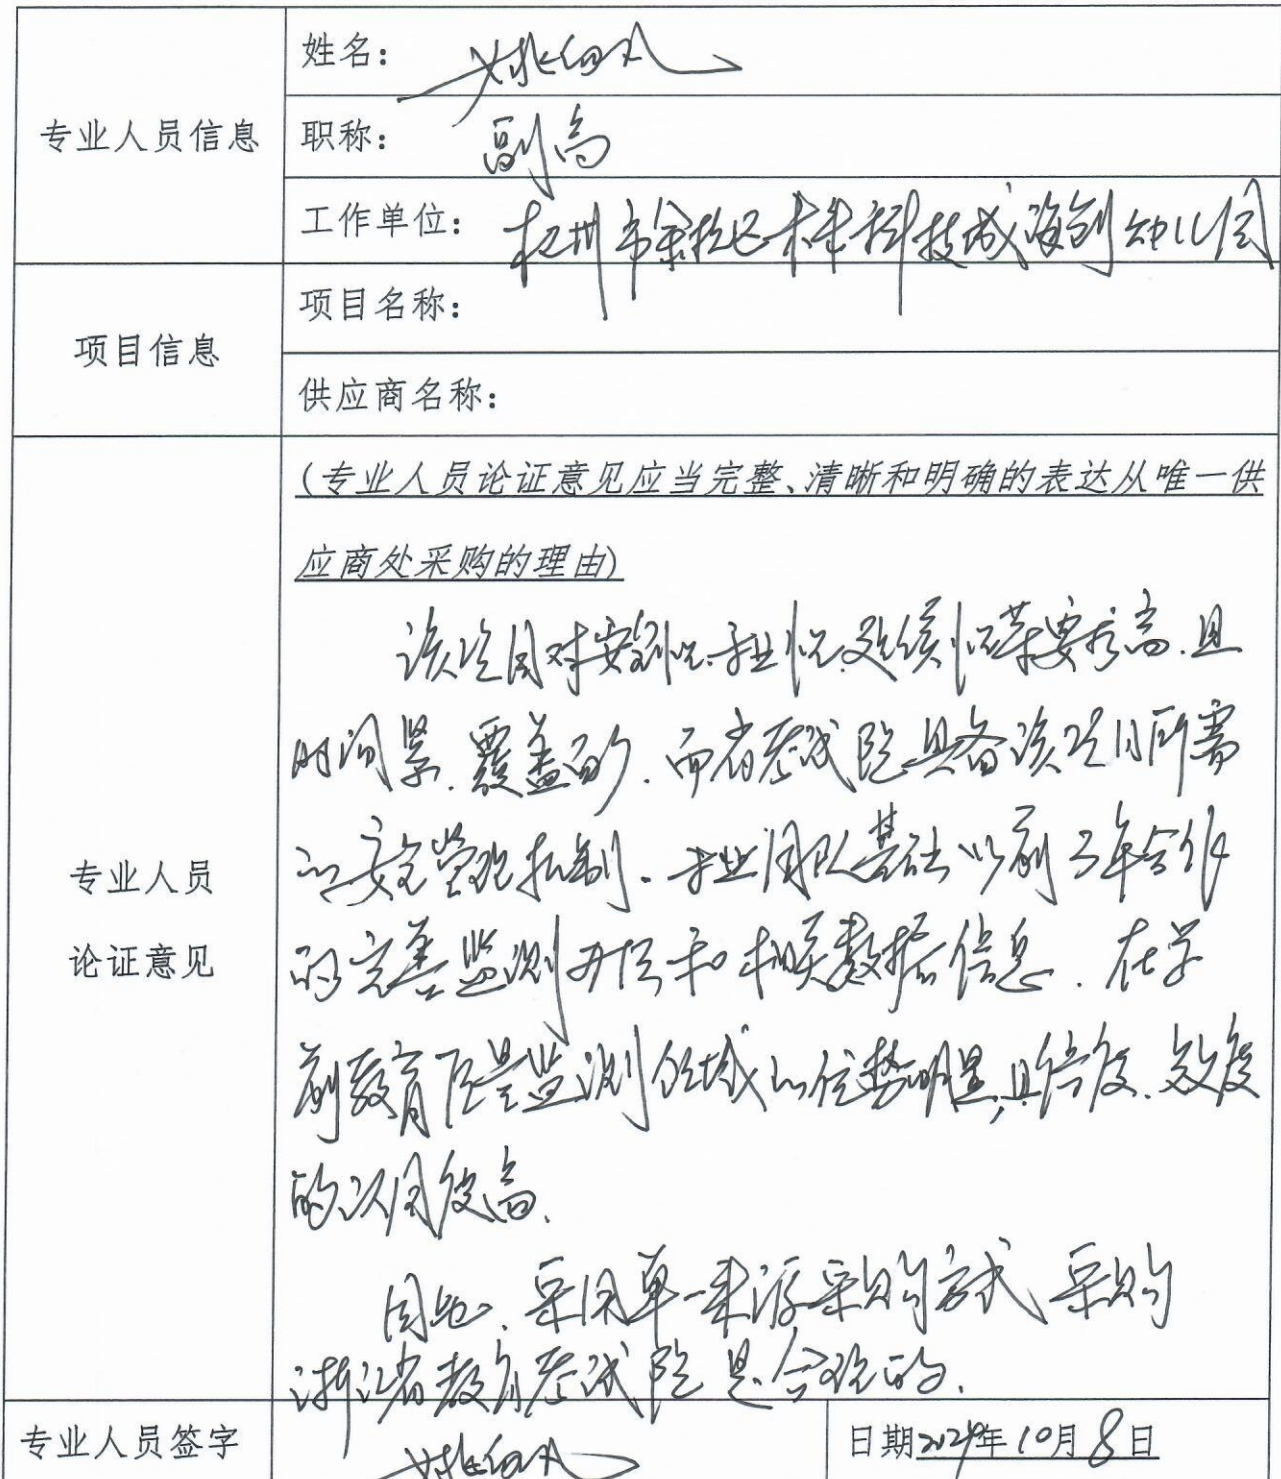 专业人员信息
姓名：姚
职称：副高
工作单位：杭州市余杭区未来科技城海创幼儿园
项目信息
项目名称：
供应商名称：
(专业人员论证意见应当完整、清晰和明确的表达从唯一供
应商处采购的理由)
专业人员
论证意见
该项目对安全性、专业性、延续性等要求高，且
时间紧、覆盖面广，而省考试院具备该项目所需
的安全管理机制、专业团队基础以前3年合作
的完善监测工具和相关数据信息，在学
前教育质量监测领域的优势明显，且信度、效度
的认同度高。
因此，采用单一来源采购方式，采购
浙江省教育考试院是合理的。
专业人员签字
姚
日期2024年10月8日